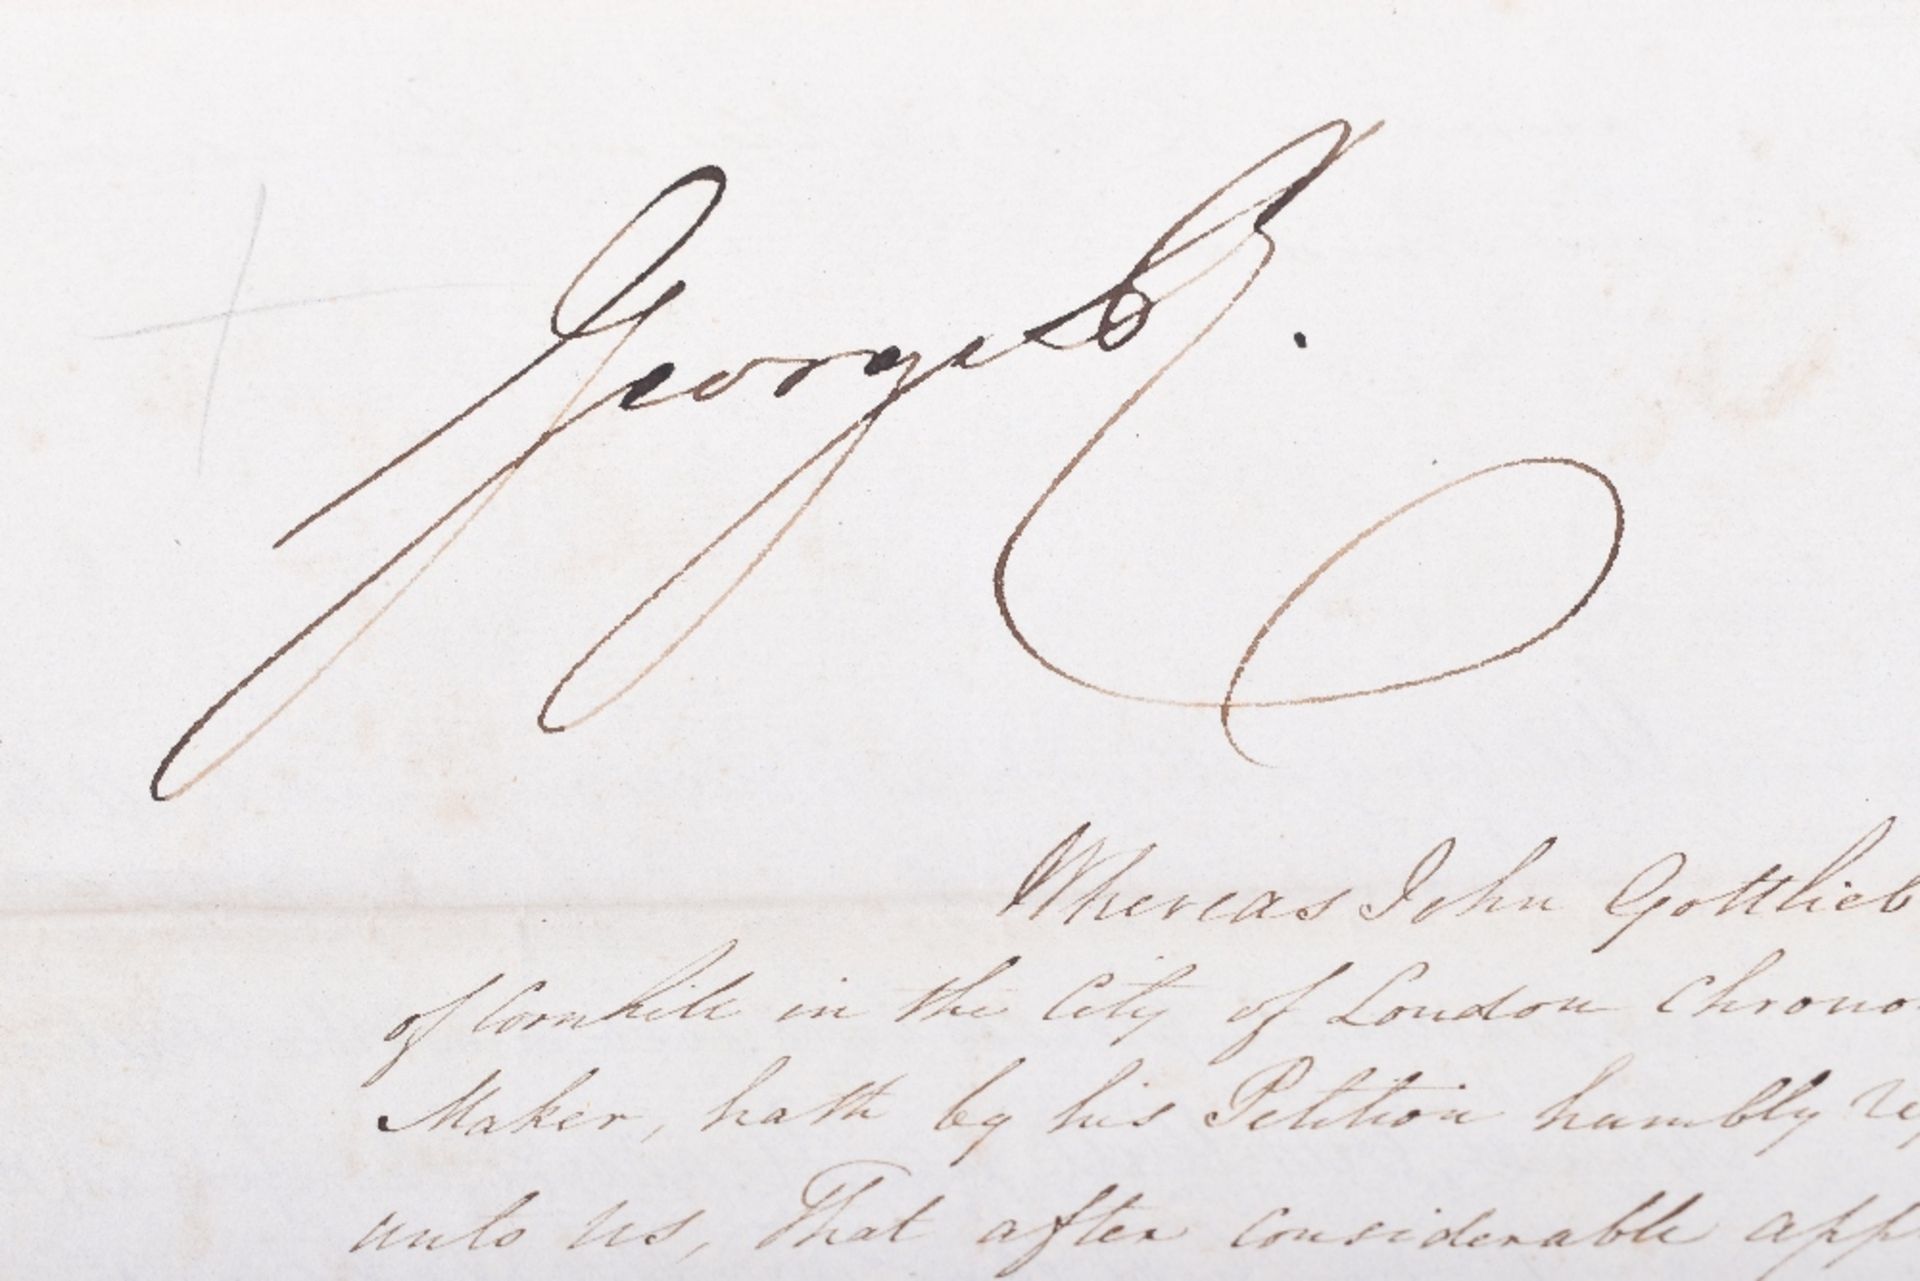 George R.
Whereas John Gottlieb
of Cornhill in the City of London Chrono
Maker, hath by his Petition humbly rep
unto us, That after considerable app